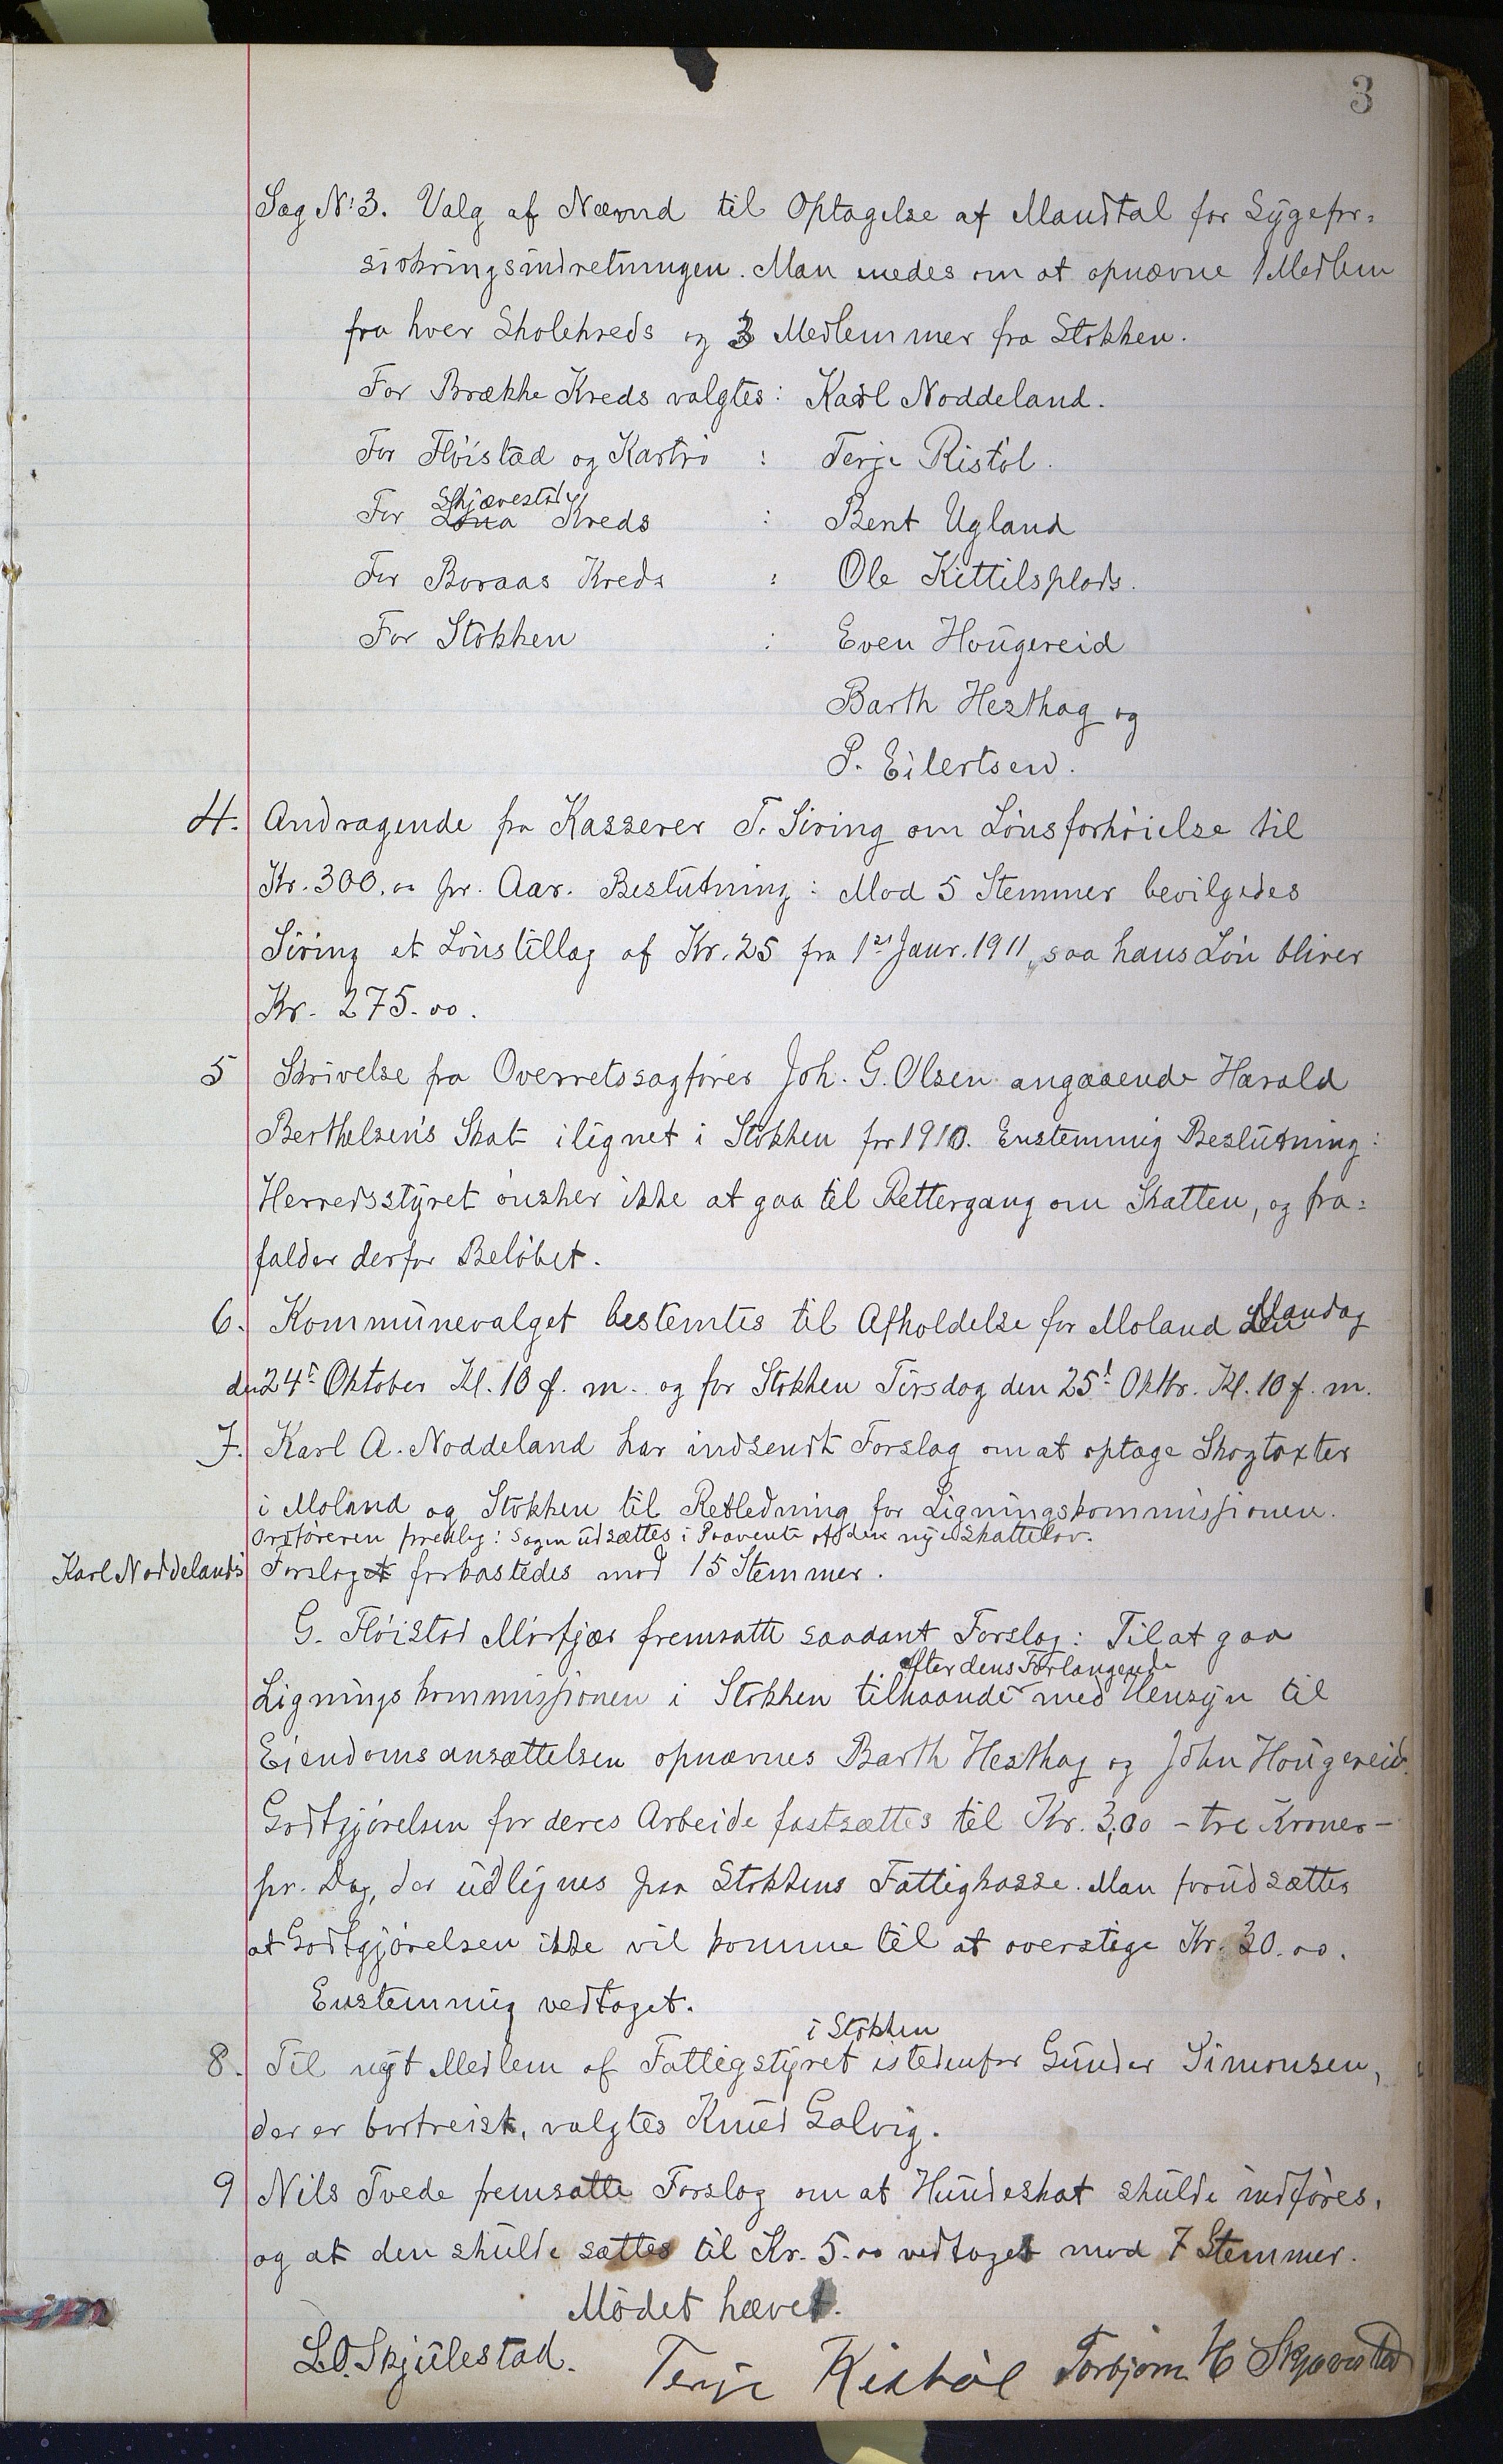 3
Sag No 3. Valg af Nævnd til Optagelse af Mandtal for Sygefor-
sikringsindretningen. Man enedes om at opnævne 1 Medlem
fra hver Skolekreds og 3 Medlemmer fra Stokken.
For Brække Kreds valgtes: Karl Noddeland.
For Fløistad og Kartrø : Terje Ristøl.
Skjævestad
For Løna Kreds : Bent Ugland
For Boraas Kreds : Ole Kittilsplads.
For Stokken : Even Hougereid
Barth Hesthag og
P. Eilertsen.
4. Andragende fra Kasserer T. Siring om Lønsforhøielse til
Kr. 300.00 pr. Aar. Beslutning: Mod 5 Stemmer bevilgedes
Siring et Lønstillæg af Kr. 25 fra 1st Janr. 1911, saa hans Løn bliver
Kr. 275.00.
5 Skrivelse fra Overretssagfører Joh. G. Olsen angaaende Harald
Berthelsens Skat ilignet i Stokken for 1910. Enstemmig Beslutning:
Herredsstyret ønsker ikke at gaa til Rettergang om Skatten, og fra-
falder derfor Beløbet.
6. Kommunevalget bestemtes til Afholdelse for Moland den Mandag
den 24de Oktober Kl. 10 f. m. og for Stokken Tirsdag den 25de Oktbr. Kl. 10 f. m.
7. Karl A. Noddeland har indsendt Forslag om at optage Skogtaxter
i Moland og Stokken til Retledning for Ligningskommissionen.
Ordføreren foreslog: Sagen udsættes i Paavente af den nye Skattelov.
Karl Noddelands Forslaget forkastedes mod 15 Stemmer.
G. Fløistad Mørfjær fremsatte saadant Forslag: Til at gaa
efter dens Forlangende
Ligningskommissionen i Stokken tilhaande med Hensyn til
Eiendomsansættelsen opnævnes Barth Hesthag og John Hougereid.
Godtgjørelsen for deres Arbeide fastsættes til Kr. 3,00 - tre Kroner -
pr. Dag, der udlignes paa Stokkens Fattigkasse. Man forudsætter
at Godtgjørelsen ikke vil komme til at overstige Kr. 30.00.
Enstemmig vedtaget.
i Stokken
8. Til nyt Medlem af Fattigstyret istedenfor Gunder Simonsen,
der er bortreist, valgtes Knud Salvig.
9 Nils Tvede fremsatte Forslag om at Hundeskat skulde indføres,
og at den skulde sættes til Kr. 5.00 vedtaget mod 7 Stemmer.
Mødet hævet.
L.O. Skjulestad. Terje Ristøl Torbjørn H Skjævestad